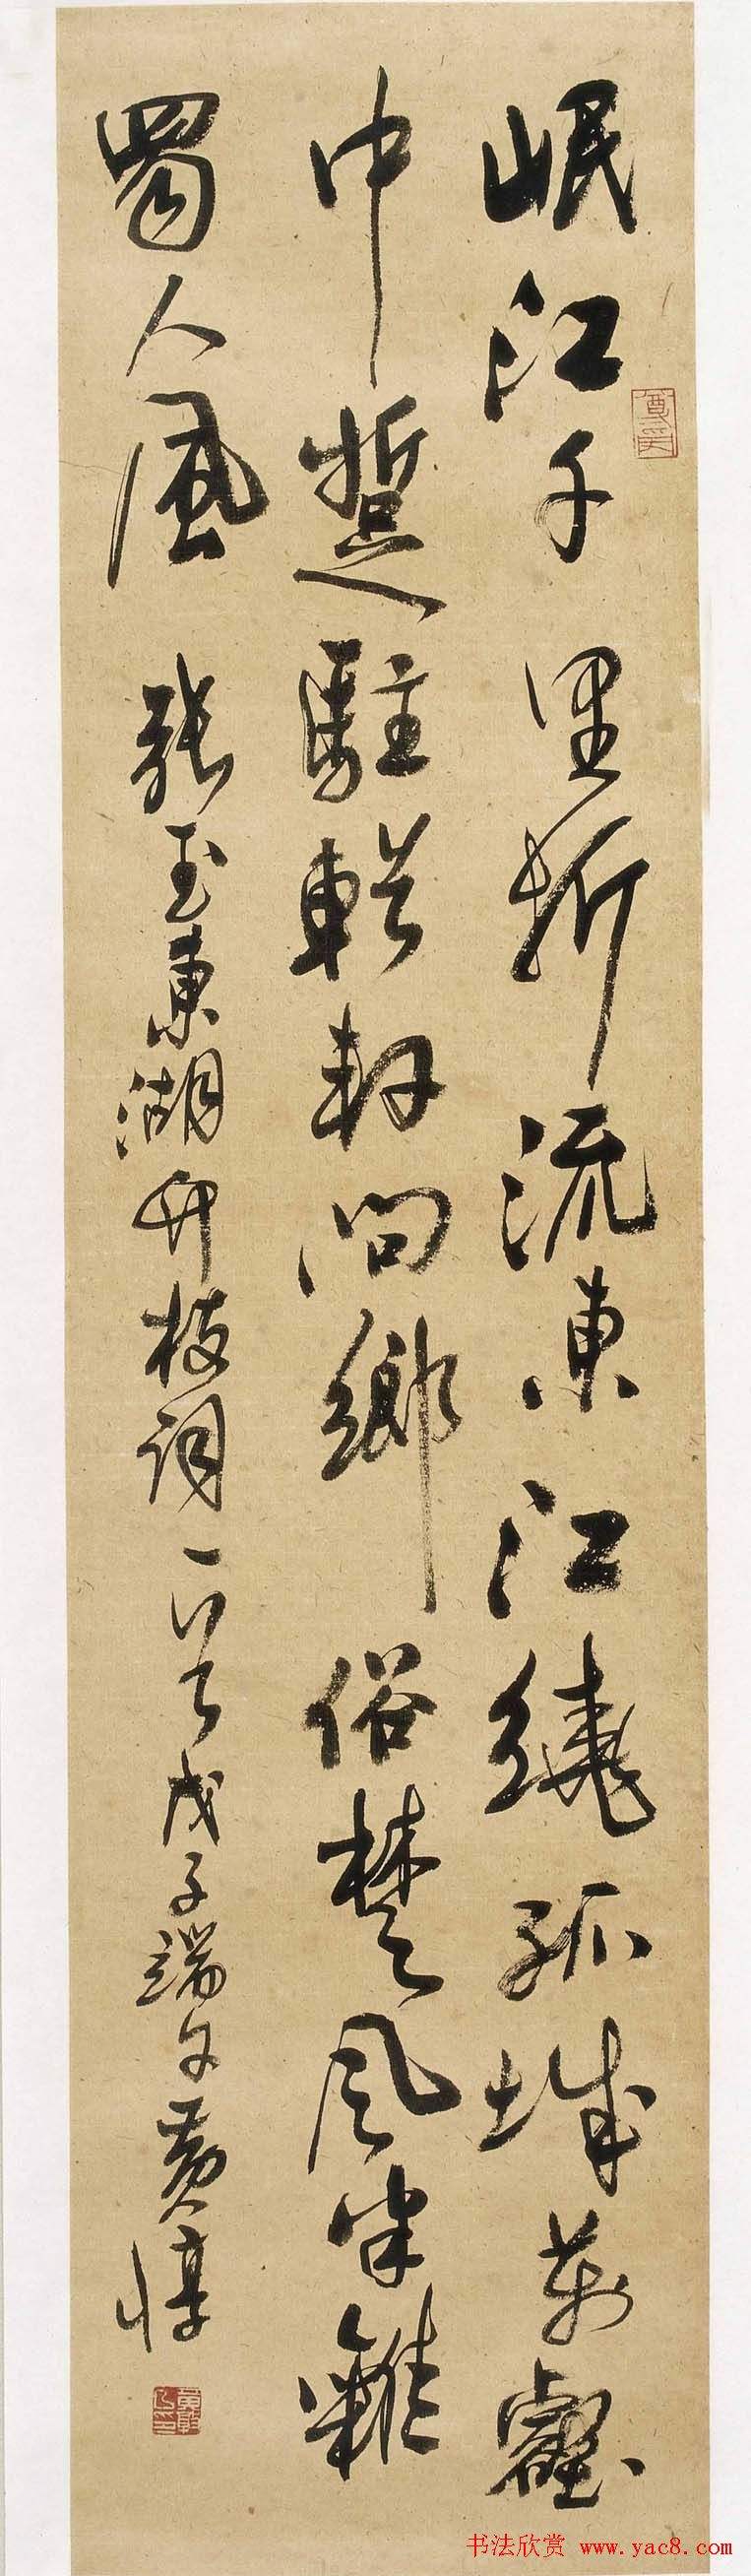 岷江千里折流東江繞孤城萬壑
中蹔駐輶軒問鄉俗楚風半雜
蜀人風 張玉東湖竹枝詞一首 戊子端午黃惇
书法欣赏 www.yac8.com